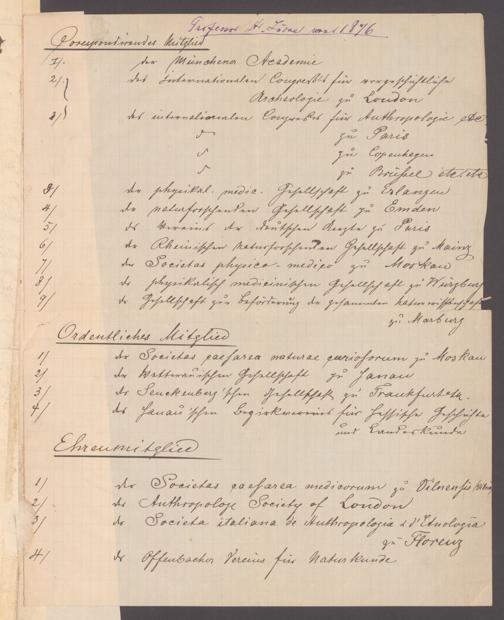 Professor Dr. 1876
Correspondirendes Mitglied
1/. der Münchena Academie
2/. des internationalen Congresses für vorgeschichtliche
Archeologie zu London
3/ des internationalen Congresses für Anthropologie etc.
zu Paris
zu Copenhagen
zu Brüssel etc etc
3/ der physikal. medic. Gesellschaft zu Erlangen
4/ der naturforschenden Gesellschaft zu Emden
5/ des Vereins der deutschen Aerzte zu Paris
6/ der Rheinischen naturforschenden Gesellschaft zu Mainz
7/ der Societas physico-medico zu Moskau
8/ der physikalisch medicinischen Gesellschaft zu Würzburg
9/ der Gesellschaft zur Beförderung der gesammten Naturwissenschaft
zu Marburg
Ordentliches Mitglied
1/ der Societas caesarea naturae curiosorum zu Moskau
2/ der Wetterauischen Gesellschaft zu Hanau
3/ der Senckenberg'schen Gesellschaft zu Frankfurt a.
4/ des Hanau'schen Bezirksvereins für Hessische Geschichte
und Landeskunde
Ehrenmitglied
1/ der Societas caesarea medicorum zu Vilnensis
2/ der Anthropolog Society of London
3/ der Societa italiana de Anthropologia e d'Etnologia
zu Florenz
4/ des Offenbacher Vereins für Naturkunde